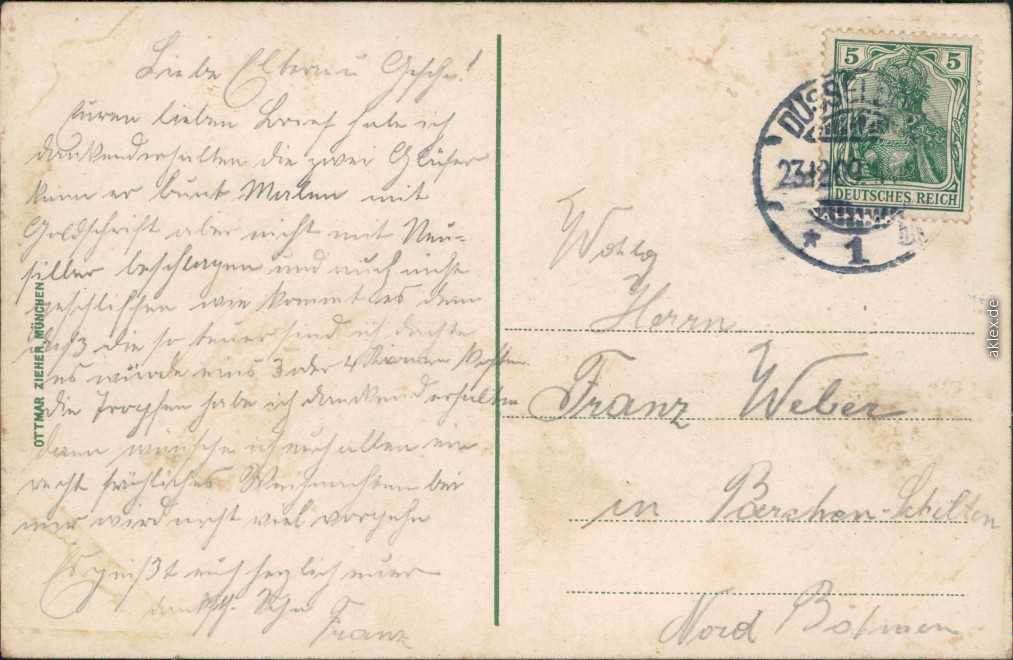 Liebe Eltern u Geschw!
Euren lieben Brief habe ich
dankend erhalten die zwei Gläser
kann er bunt Malen mit
Goldschrift aber nicht mit Neu-
silber beschlagen und auch nicht
geschliffen wie kommt es denn
daß die so teuer sind ich dachte
es würde eins 3 oder 4 Kronen kosten.
die Tropfen habe ich dankend erhalten
dann wünsche ich euch allen ein
recht fröhliches Weihnachten bei
mir wird nicht viel vorgehn
Es grüßt euch herzlich euer
dankb. Sohn Franz
OTTMAR ZIEHER MÜNCHEN
5 5
DEUTSCHES REICH
DÜSSEL
23.12.09
* 1
Wohlg
Herrn
Franz Weber
in Parchen-Schelten
Nord Böhmen
aklex.de